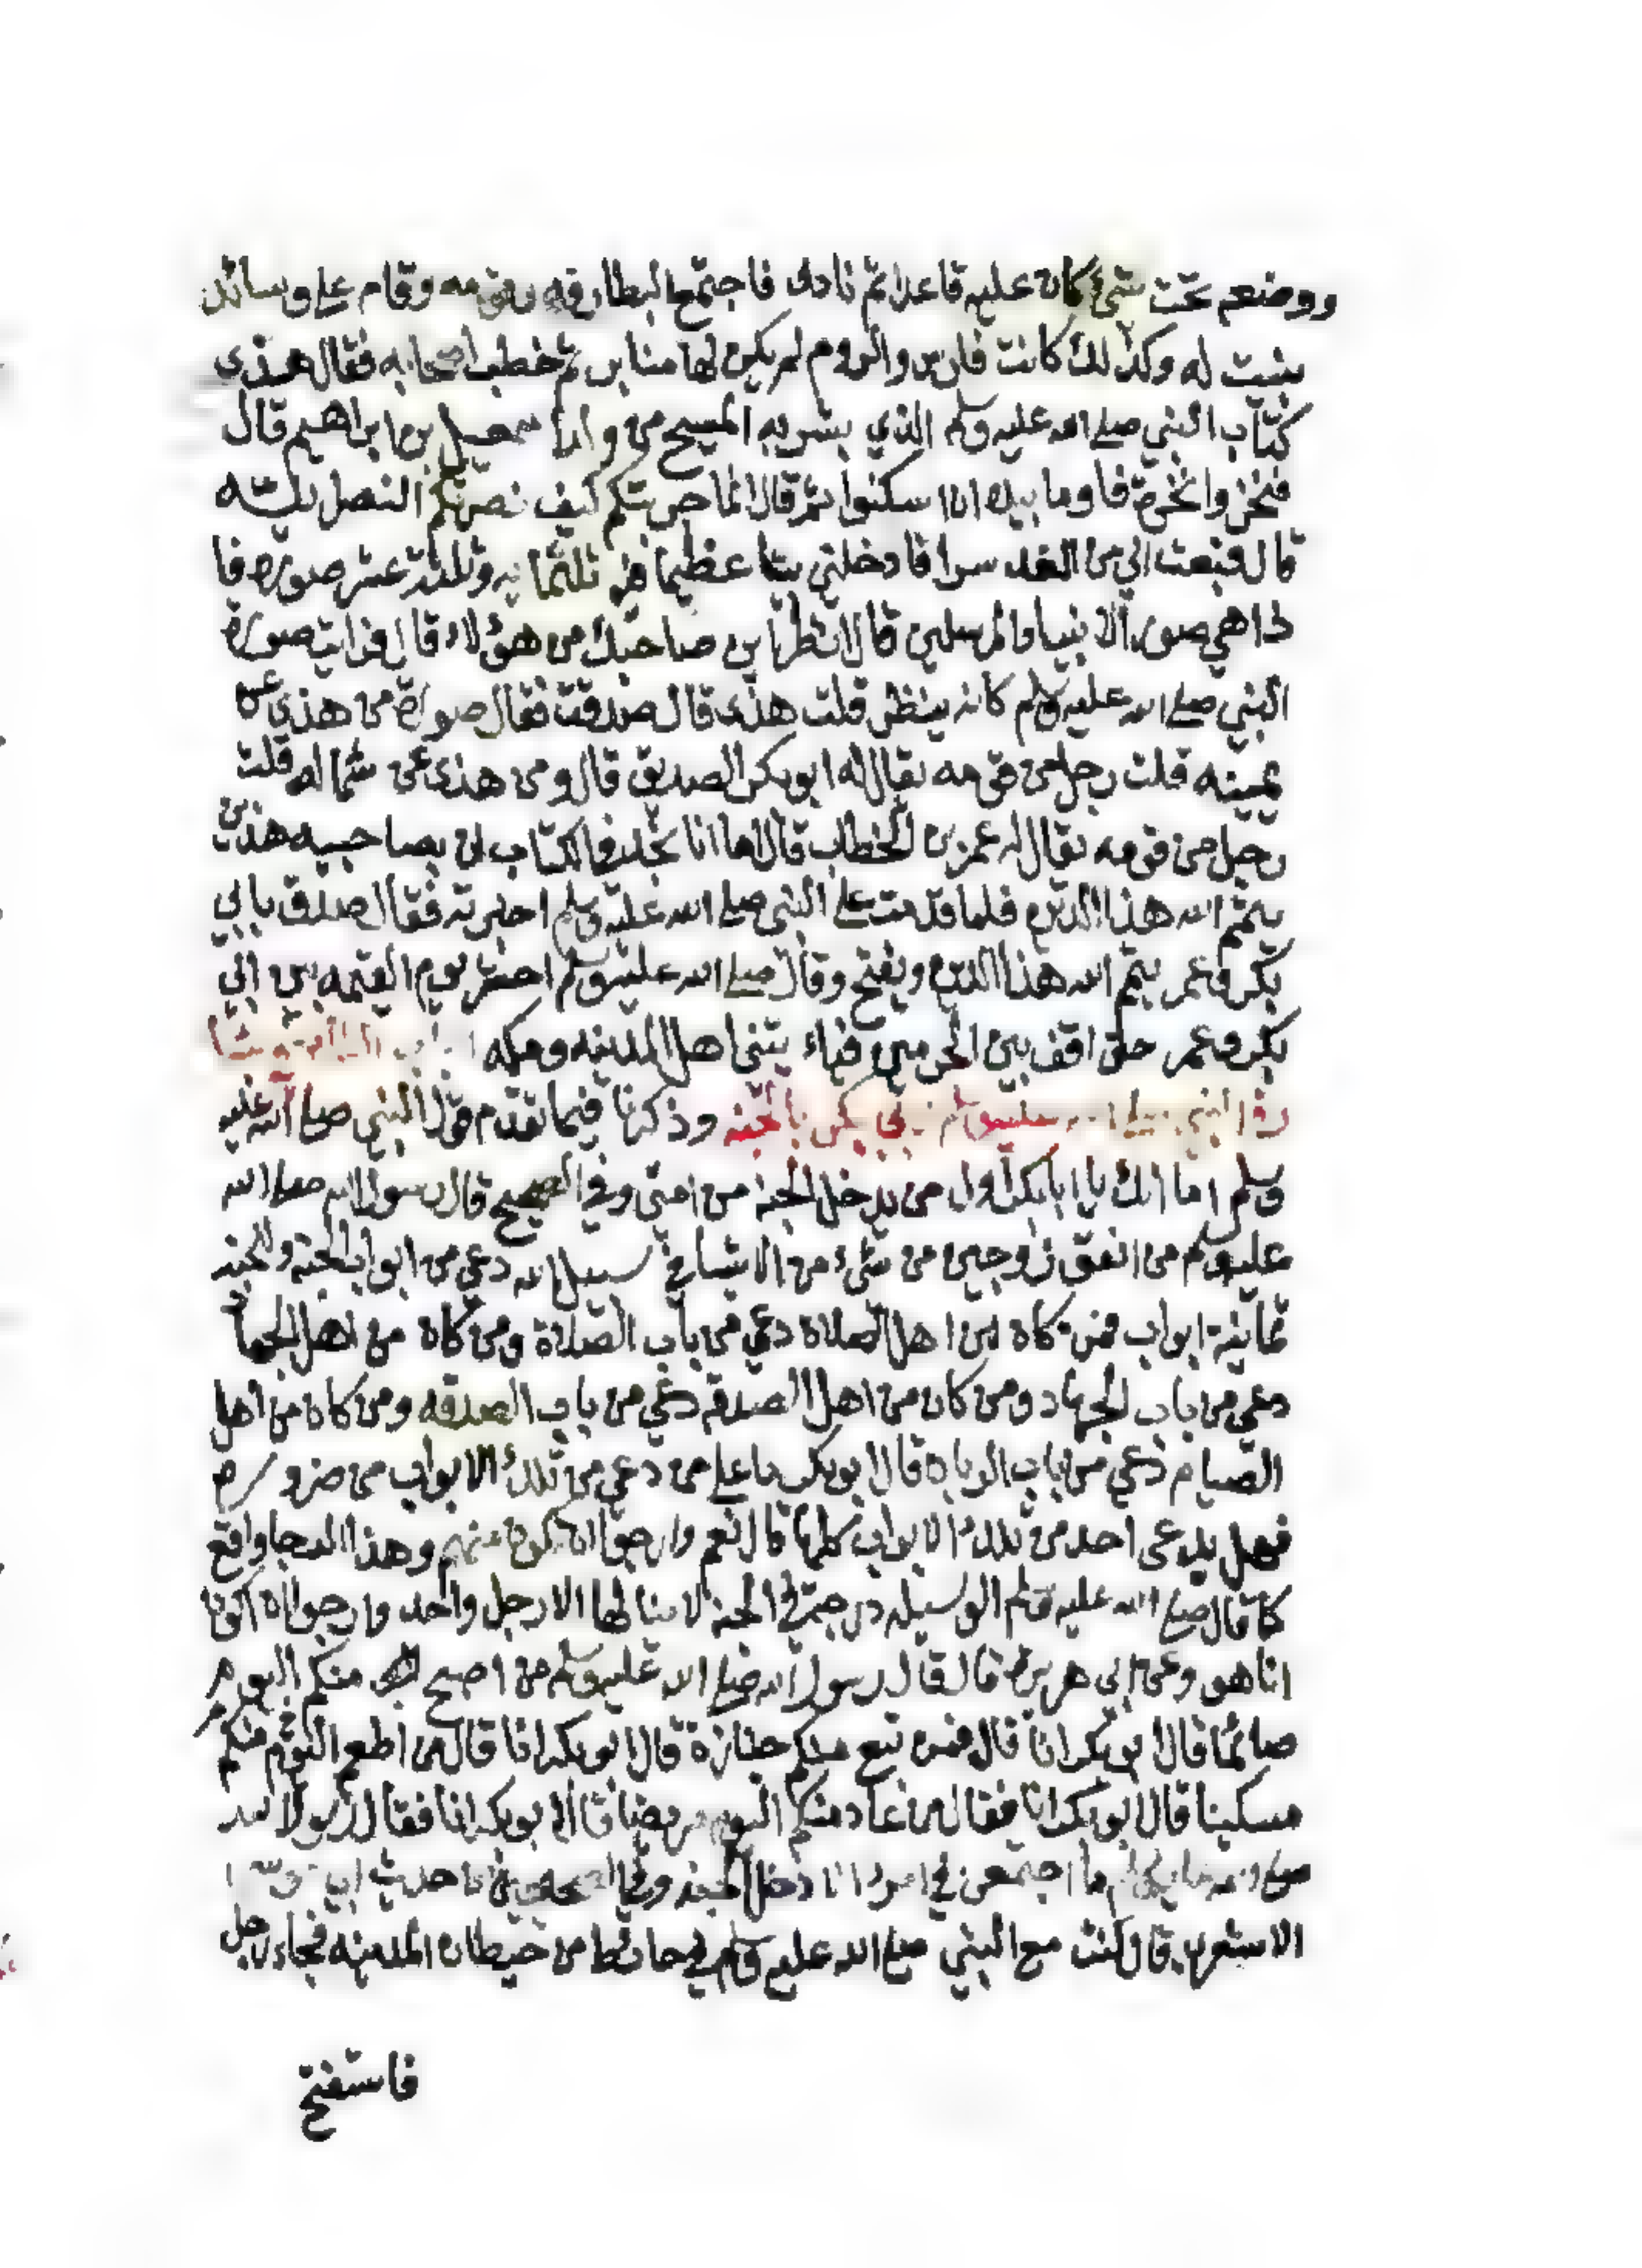 ووضعه تحت شئ كان عليه قاعدا ثم نادى فاجتمع البطارقه وقومه وقام على وسائد
بنيت له وكذلك كانت فارس والروم لم يكن لها منابر ثم خطب اصحابه فقال هذى
كتاب النبي صلى الله عليه وسلم الذي بشر به المسيح من ولد اسمعيل بن ابراهيم قال
فنخروا نخرة فاوما بيده ان اسكتوا ثم قال انما جربتكم كيف نصرتكم النصرانيه
قال فبعث الي من الغد سرا فادخلني بيتا عظيما فيه ثلثمايه وثلثة عشر صوره فا
ذا هي صور الانبيا والمرسلين قال انظر اين صاحبك من هؤلاء قال فرايت صورة
النبي صلى الله عليه وسلم كانه ينظر قلت هذى قال صدقت فقال صورة من هذى عن
يمينه قلت رجل من قومه يقال له ابو بكر الصديق قال ومن هذى عن شماله قلت
رجل من قومه يقال له عمر بن الخطاب قال اما انا نجد في الكتاب ان بصاحبيه هذين
يتم الله هذا الدين فلما قدمت على النبي صلى الله عليه وسلم اخبرته فقال صدق بابي
بكر وعمر يتم الله هذا الدين ويفتح وقال صلى الله عليه وسلم احشر يوم القيمه بين ابي
بكر وعمر حتى اقف بين الحرمين فياء يتنى اهل المدينه ومكه
النبي صلى الله عليه وسلم لابي بكر بالجنه وذكرنا فيما تقدم قول النبي صلى الله عليه
وسلم اما انك يا ابا بكر اول من يدخل الجنه من امتي وفي الصحيح قال رسول الله صلى الله
عليه وسلم من انفق زوجين من شىء من الاشيا في سبيل الله دعي من ابواب الجنة وللجنه
ثمانية ابواب فمن كان من اهل الصلاة دعي من باب الصلاة ومن كان من اهل الجهاد
دعي من باب الجهاد ومن كان من اهل الصدقه دعي من باب الصدقه ومن كان من اهل
الصيام دعي من باب الريان قال ابو بكر ما على من دعي من تلك الابواب من ضروره
فهل يدعى احد من تلك الابواب كلها قال نعم وارجو ان تكون منهم وهذا الرجا واقع
كما قال صلى الله عليه وسلم الوسيله درجة في الجنه لا ينالها الا رجل واحد وارجو ان اكون
انا هو وعن ابي هريرة قال قال رسول الله صلى الله عليه وسلم من اصبح منكم اليوم
صائما قال ابو بكر انا قال فمن تبع منكم جنازة قال ابو بكر انا قال من اطعم اليوم منكم
مسكينا قال ابو بكر انا فقال من عاد منكم اليوم مريضا قال ابو بكر انا فقال رسول الله
صلى الله عليه وسلم ما اجتمعن في امرئ الا دخل الجنه وفي الصحيحين من حديث ابي موسى
الاشعري قال كنت مع النبي صلى الله عليه وسلم في حائط من حيطان المدينه فجاء رجل
فاستفتح